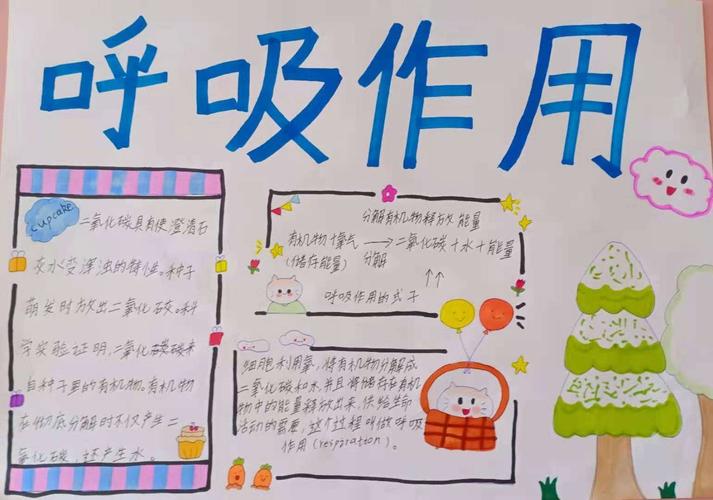 呼吸作用
cupcake
二氧化碳具有使澄清石
灰水变浑浊的特性。种子
萌发时放出二氧化碳。科
学实验证明,二氧化碳碳来
自种子里的有机物。有机物
在彻底分解时不仅产生二
氧化碳,还产生水。
分解有机物释放能量
有机物+氧气→二氧化碳+水+能量
(储存能量) 分解
↑↑
呼吸作用的式子
细胞利用氧,将有机物分解成
二氧化碳和水并且将储存在有机
物中的能量释放出来,供给生命
活动的需要,这个过程叫做呼吸
作用(respiration)。